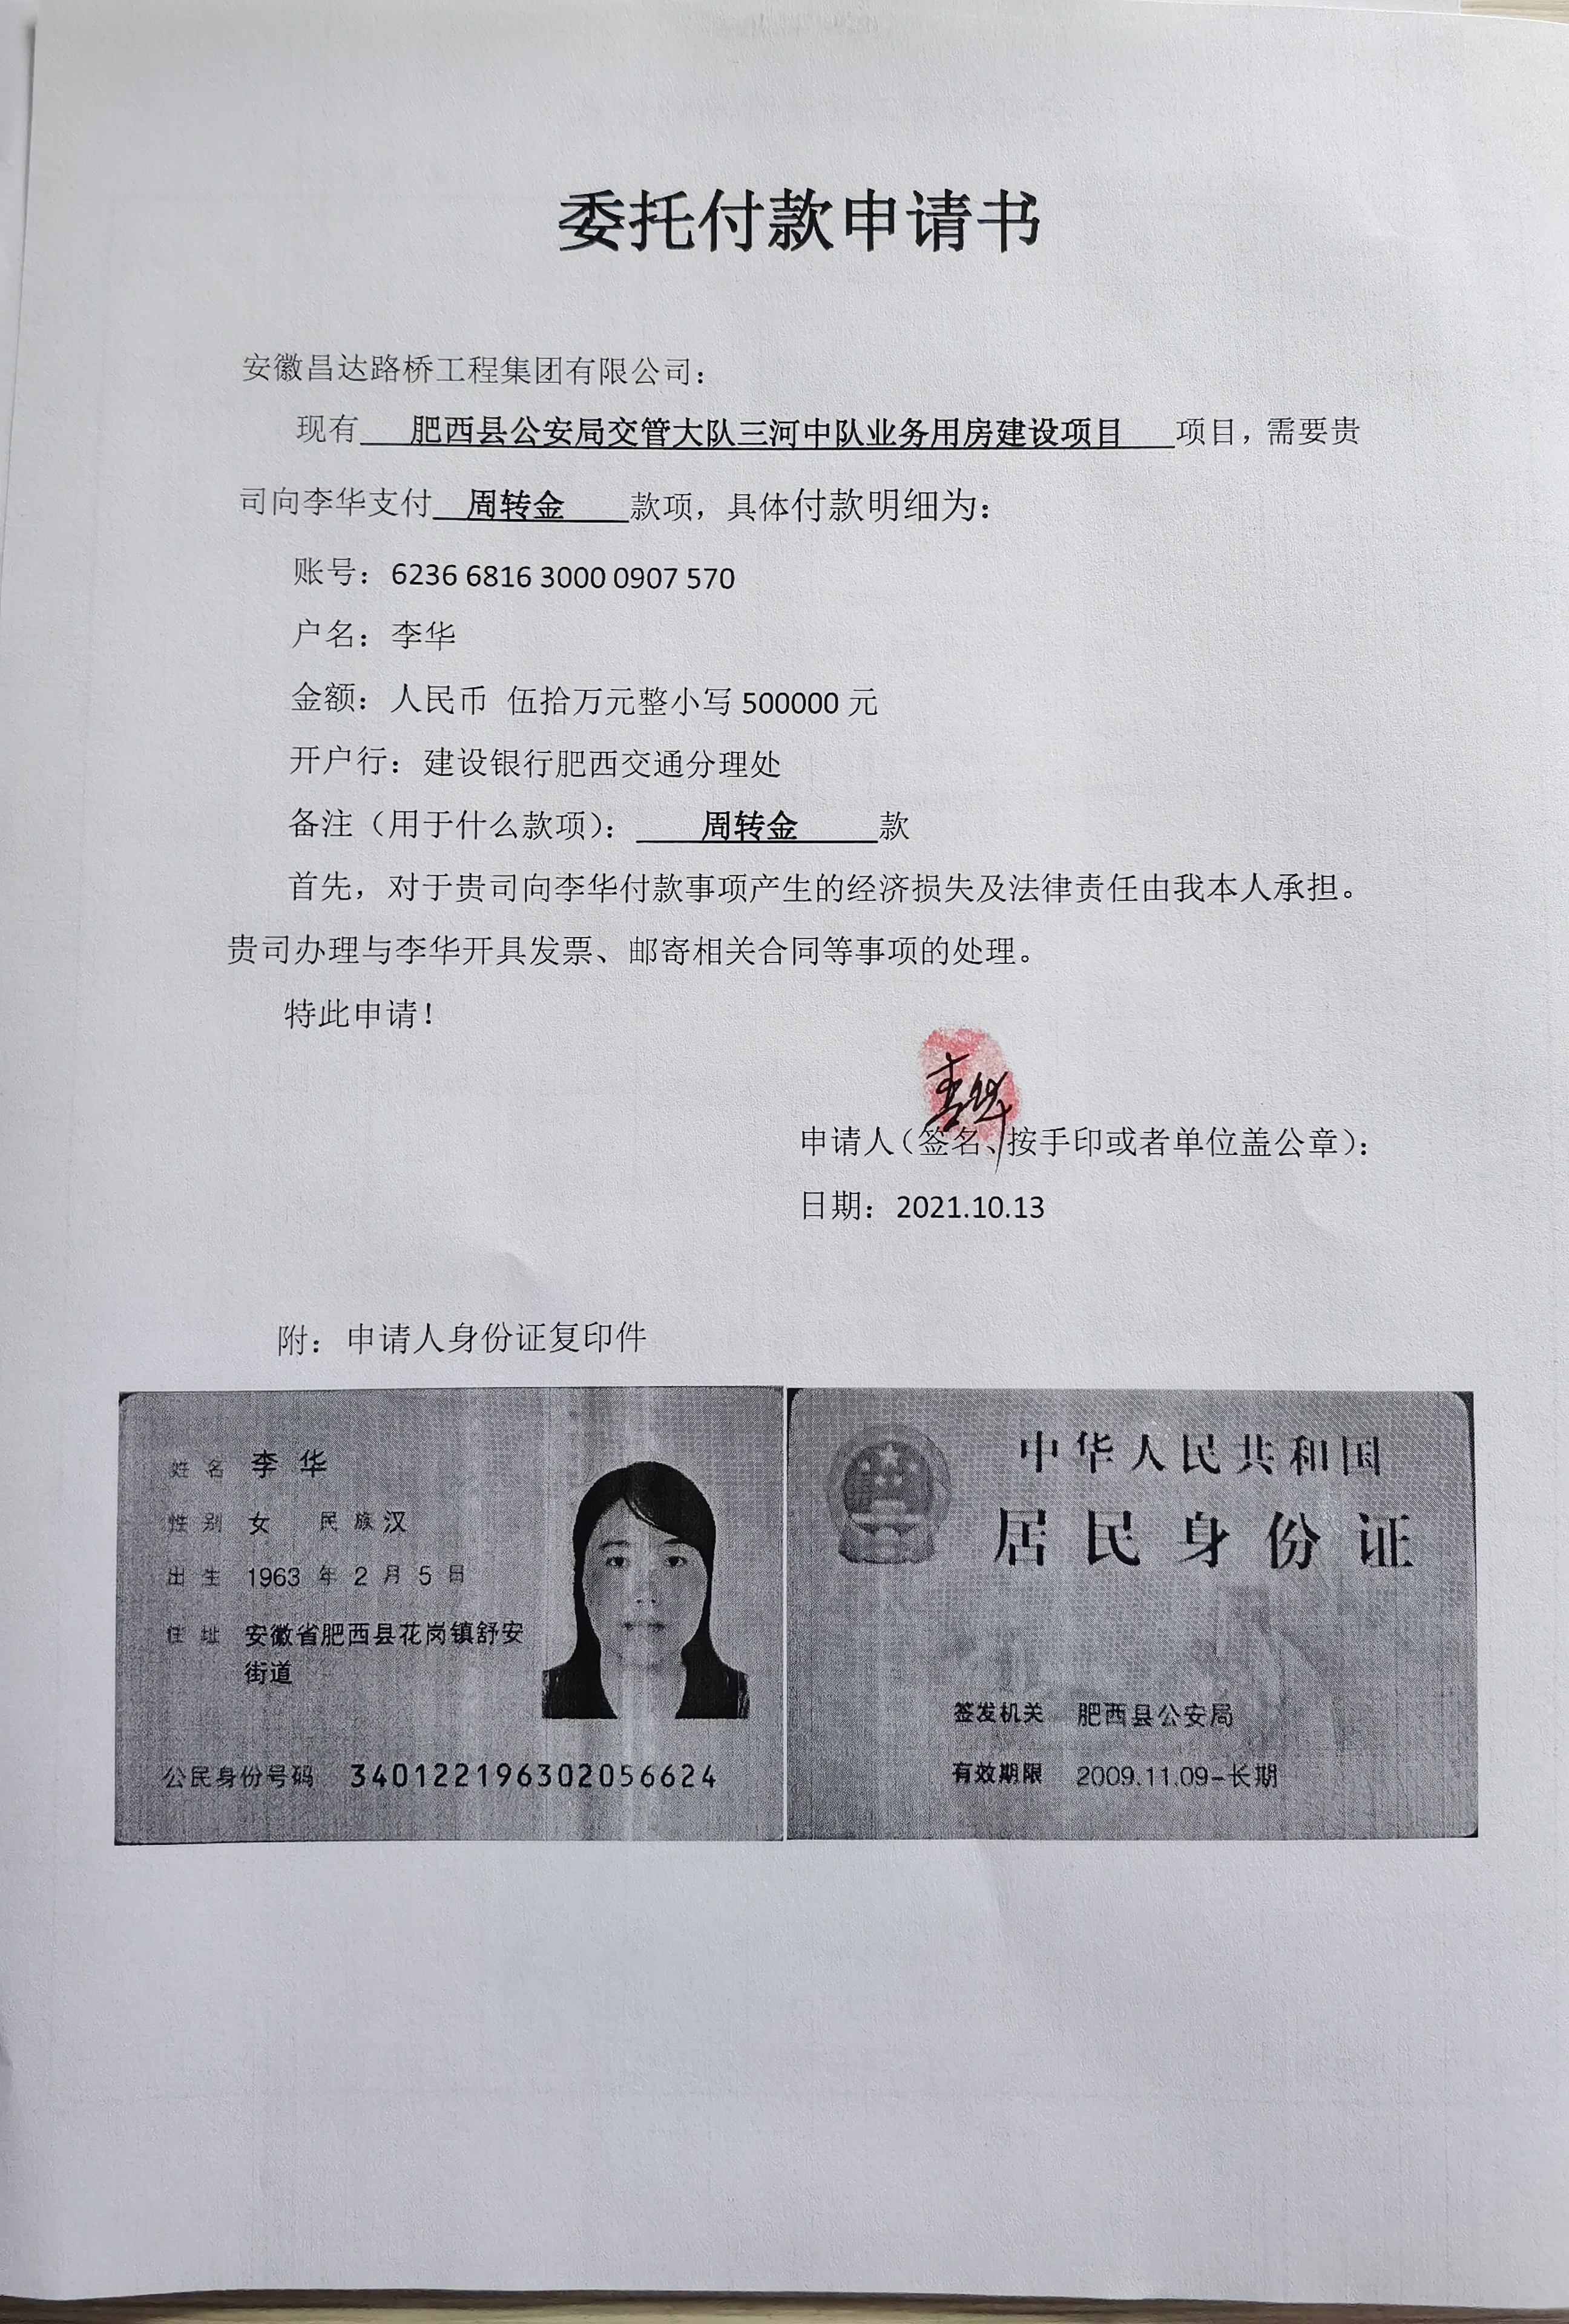 委托付款申请书
安徽昌达路桥工程集团有限公司：
现有 肥西县公安局交管大队三河中队业务用房建设项目 项目，需要贵
司向李华支付 周转金 款项，具体付款明细为：
账号：6236 6816 3000 0907 570
户名：李华
金额：人民币 伍拾万元整小写 500000 元
开户行：建设银行肥西交通分理处
备注（用于什么款项）： 周转金 款
首先，对于贵司向李华付款事项产生的经济损失及法律责任由我本人承担。
贵司办理与李华开具发票、邮寄相关合同等事项的处理。
特此申请！
李华
申请人（签名、按手印或者单位盖公章）：
日期：2021.10.13
附：申请人身份证复印件
姓名 李华
性别 女 民族 汉
出生 1963 年 2 月 5 日
住址 安徽省肥西县花岗镇舒安
街道
公民身份号码 340122196302056624
中华人民共和国
居民身份证
签发机关 肥西县公安局
有效期限 2009.11.09-长期